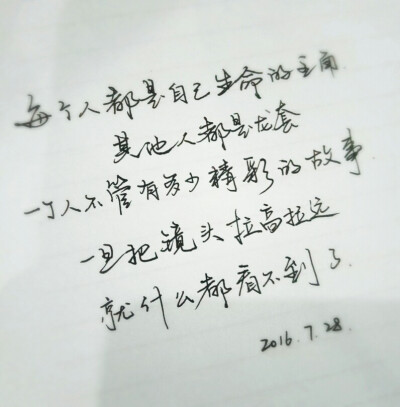 每个人都是自己生命的主角
其他人都是龙套
一个人不管有多少精彩的故事
一旦把镜头拉高拉远
就什么都看不到了
2016.7.28.